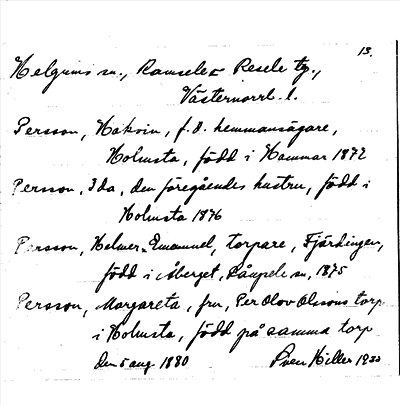 13.
Helgums sn., Ramsele o Resele tg.,
Västernorrl. l.
Persson, Hakvin, f.d. hemmansägare,
Holmsta, född i Hammar 1872
Persson, Ida, den föregåendes hustru, född i
Holmsta 1876
Persson, Helmer Emanuel, torpare, Fjärdingen,
född i Åberget, Långsele sn, 1875
Persson, Margareta, fru, Per Olov Olssons torp
i Holmsta, född på samma torp
den 5 aug 1880 Sven Hiller 1930